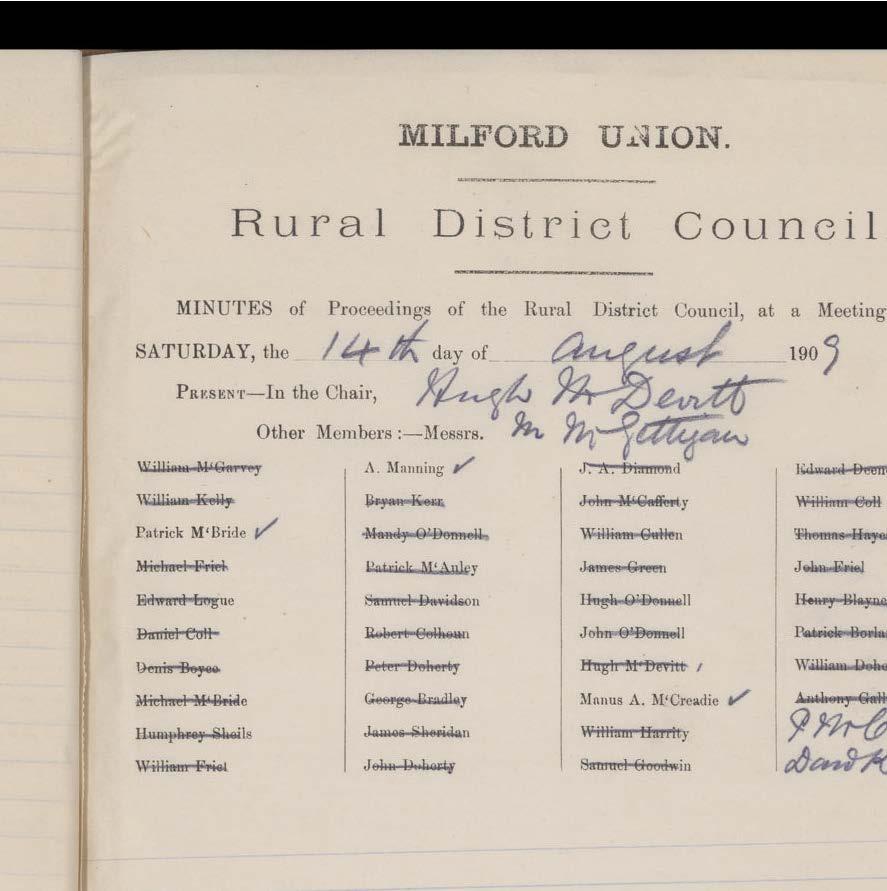 MILFORD UNION.
Rural District Council
MINUTES of Proceedings of the Rural District Council, at a Meeting
SATURDAY, the 14th day of August 1909
PRESENT—In the Chair, Hugh McDevitt
Other Members :—Messrs. M McGettigan
William M‘Garvey A. Manning ✓ J. A. Diamond Edward Deen
William Kelly Bryan Kerr John M‘Cafferty William Coll
Patrick M‘Bride ✓ Mandy O’Donnell William Cullen Thomas Haye
Michael Friel Patrick M‘Auley James Green John Friel
Edward Logue Samuel Davidson Hugh O’Donnell Henry Blayne
Daniel Coll Robert Colhoun John O’Donnell Patrick Borla
Denis Boyce Peter Doherty Hugh M‘Devitt William Dohe
Michael M‘Bride George Bradley Manus A. M‘Creadie ✓ Anthony Gall
Humphrey Sheils James Sheridan William Harrity P McC
William Friel John Doherty Samuel Goodwin David K